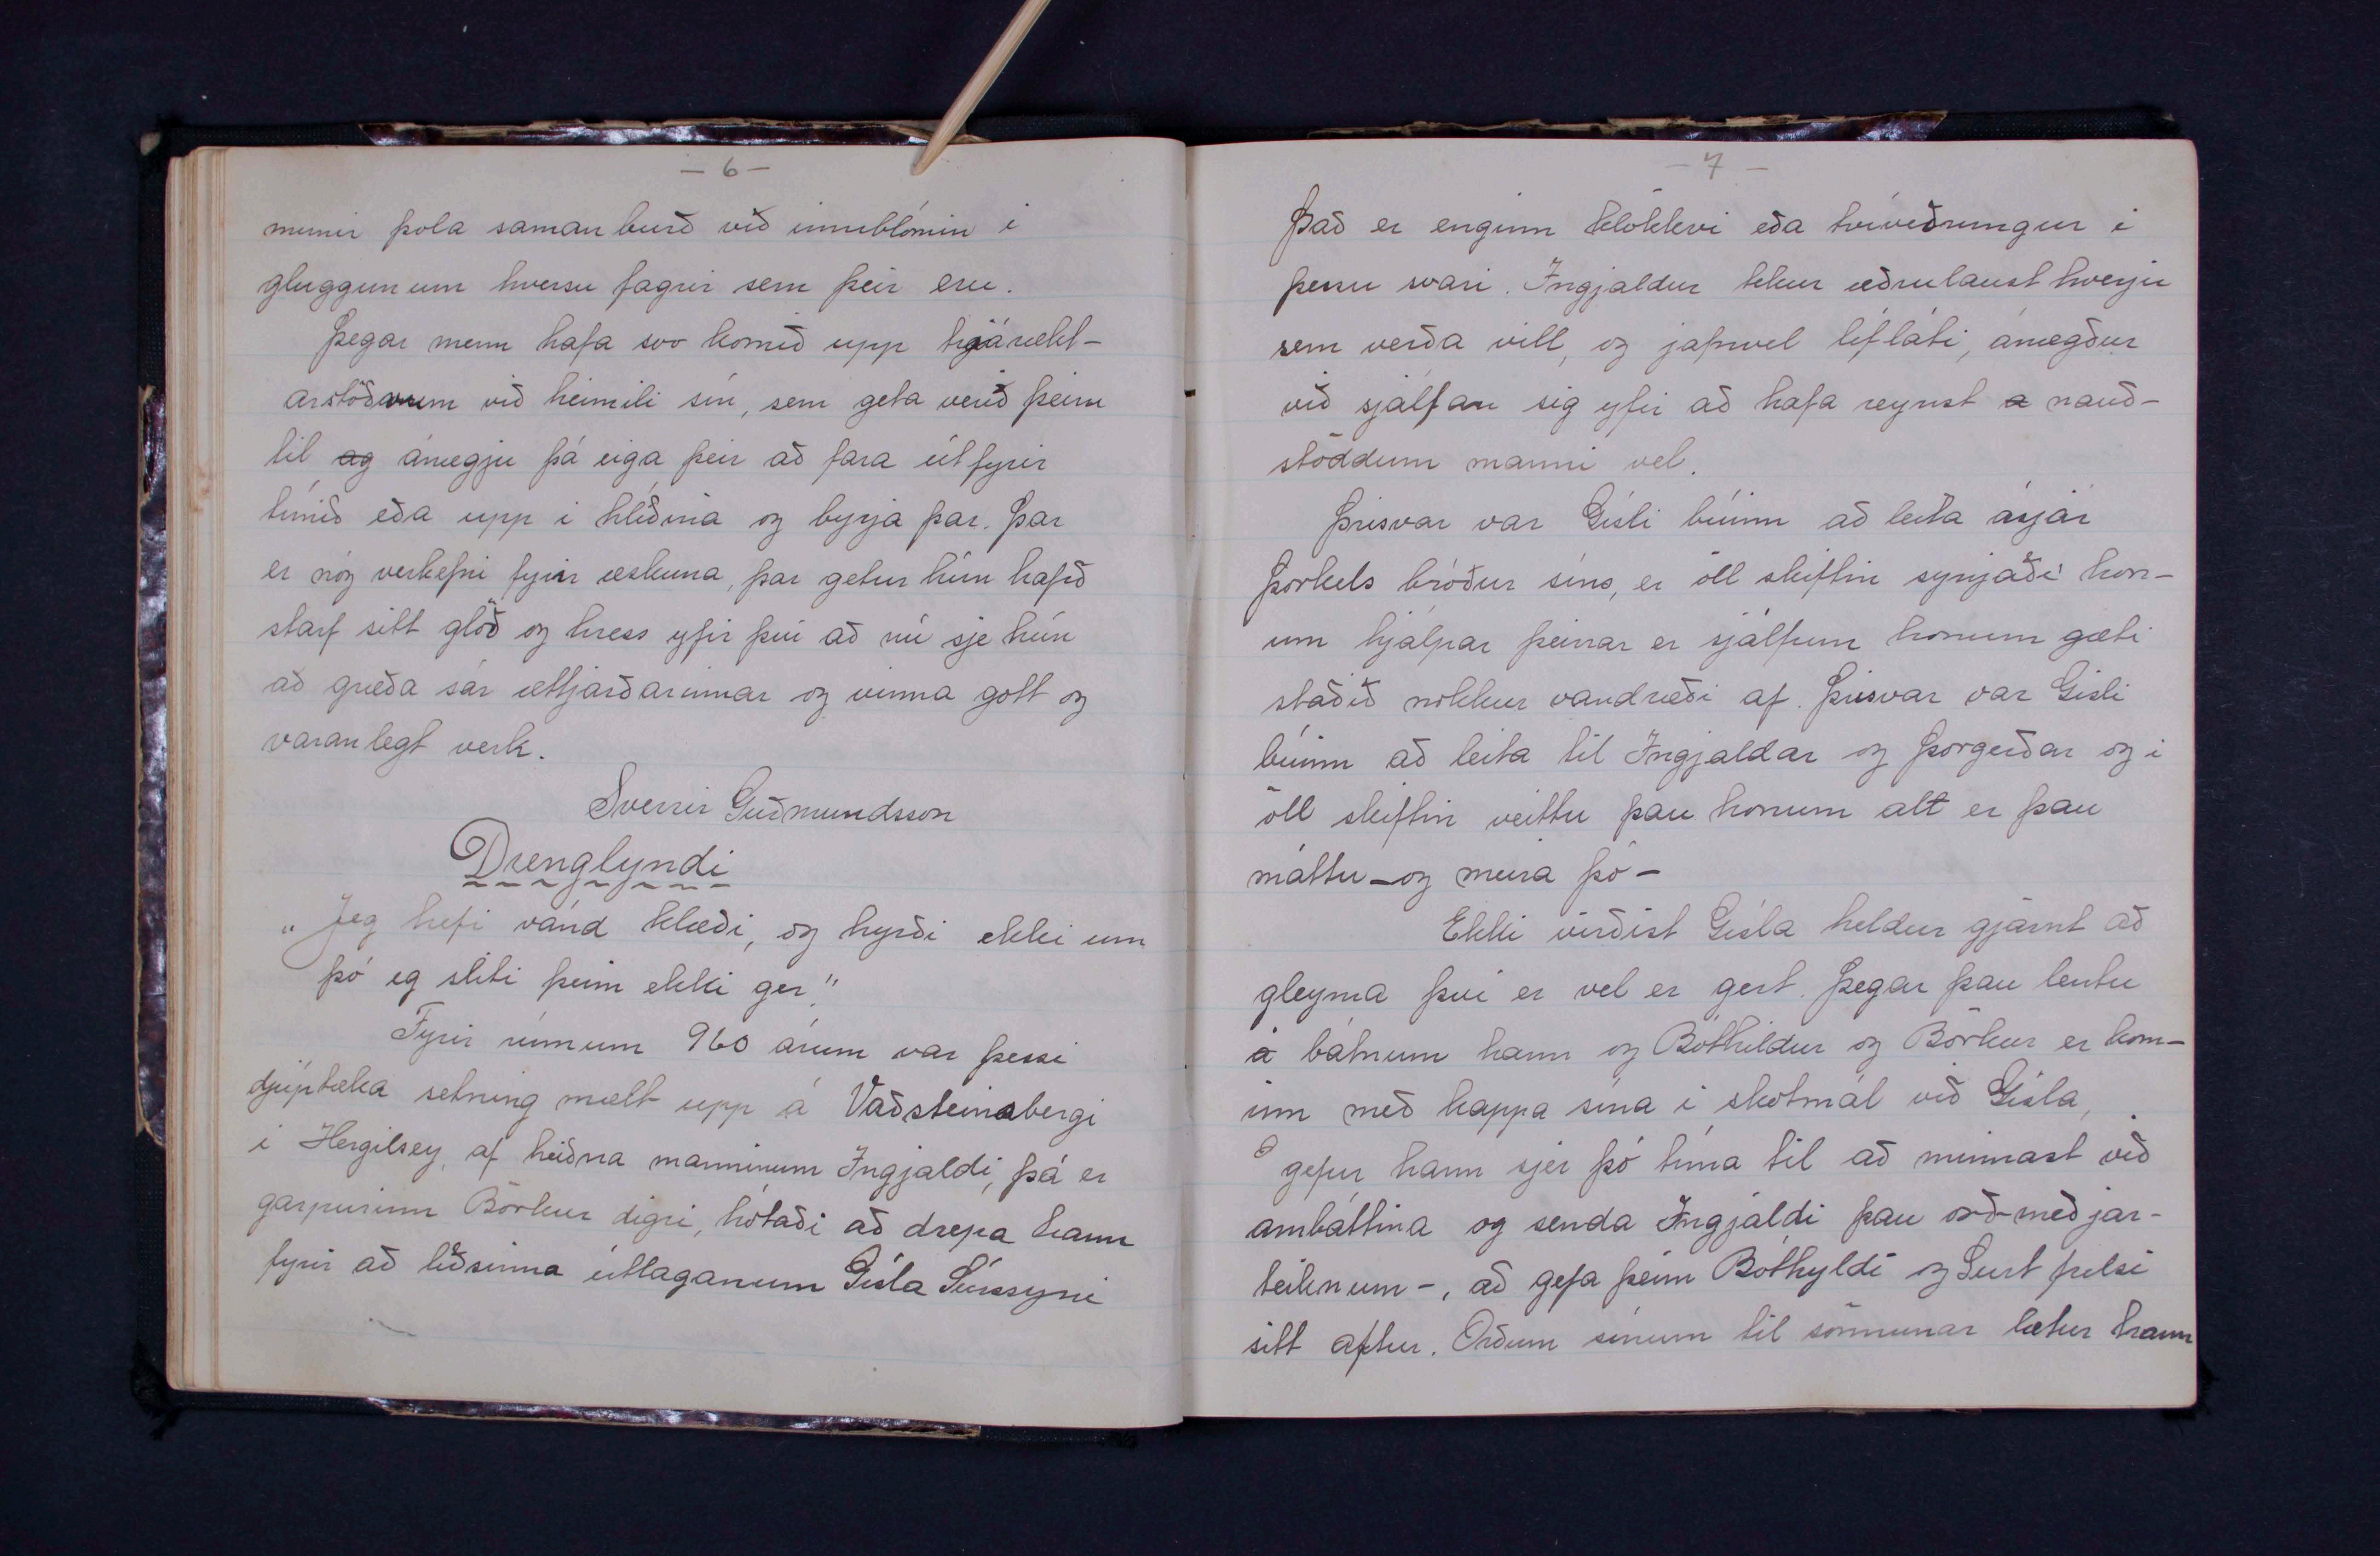 - 6 -
munir þola samanburð við inniblómin i
gluggunum hversu fagrir sem þeir eru.
Þegar menn hafa svo komið upp trjárækt-
arstöðvum við heimili sín, sem geta verið þeim
til ag ánægju þá eiga þeir að fara út fyrir
túnið eða upp i hlíðina og byrja þar. Þar
er nóg verkefni fyrir æskuna, þar getur hún hafið
starf sitt glöð og hress yfir því að nú sje hún
að græða sár ættjarðarinnar og vinna gott og
varanlegt verk.
Sverrir Guðmundsson
Drenglyndi
„Jeg hefi vánd klæði, og hyrði ekki um
þó eg sliti þeim ekki ger."
Fyrir rúmum 960 árum var þessi
djúptæka setning mælt upp á Vaðsteinabergi
i Hergilsey, af heiðna manninum Ingjaldi, þá er
garpurinn Börkur digri, hótaði að drepa hann
fyrir að liðsinna útlaganum Gísla Súrssyni
- 7 -
Það er enginn klökkvi eða tvíveðrungur i
þessu svari. Ingjaldur tekur æðrulaust hverju
sem verða vill, og jafnvel lífláti, ánægður
við sjálfan sig yfir að hafa reynst a nauð-
stöddum manni vel.
Þrisvar var Gísli búinn að leita ásjár
Þorkels bróður síns, er öll skiftin synjaði hon-
um hjálpar þeirrar er sjálfum honum gæti
staðið nokkur vandræði af. Þrisvar var Gísli
búinn að leita til Ingjaldar og Þorgerðar og i
öll skiftin veittu þau honum alt er þau
máttu - og meira þó -
Ekki virðist Gísla heldur gjárnt að
gleyma því er vel er gert. Þegar þau lentu
á bátnum hann og Bóthildur og Börkur er kom-
inn með kappa sína i skotmál við Gísla,
gefur hann sjer þó tíma til að minnast við
ambáttina og senda Ingjaldi þau orð - með jar-
teiknum -, að gefa þeim Bóthyldi og Surt frelsi
sitt aftur. Orðum sínum til sönnunar lætur hann